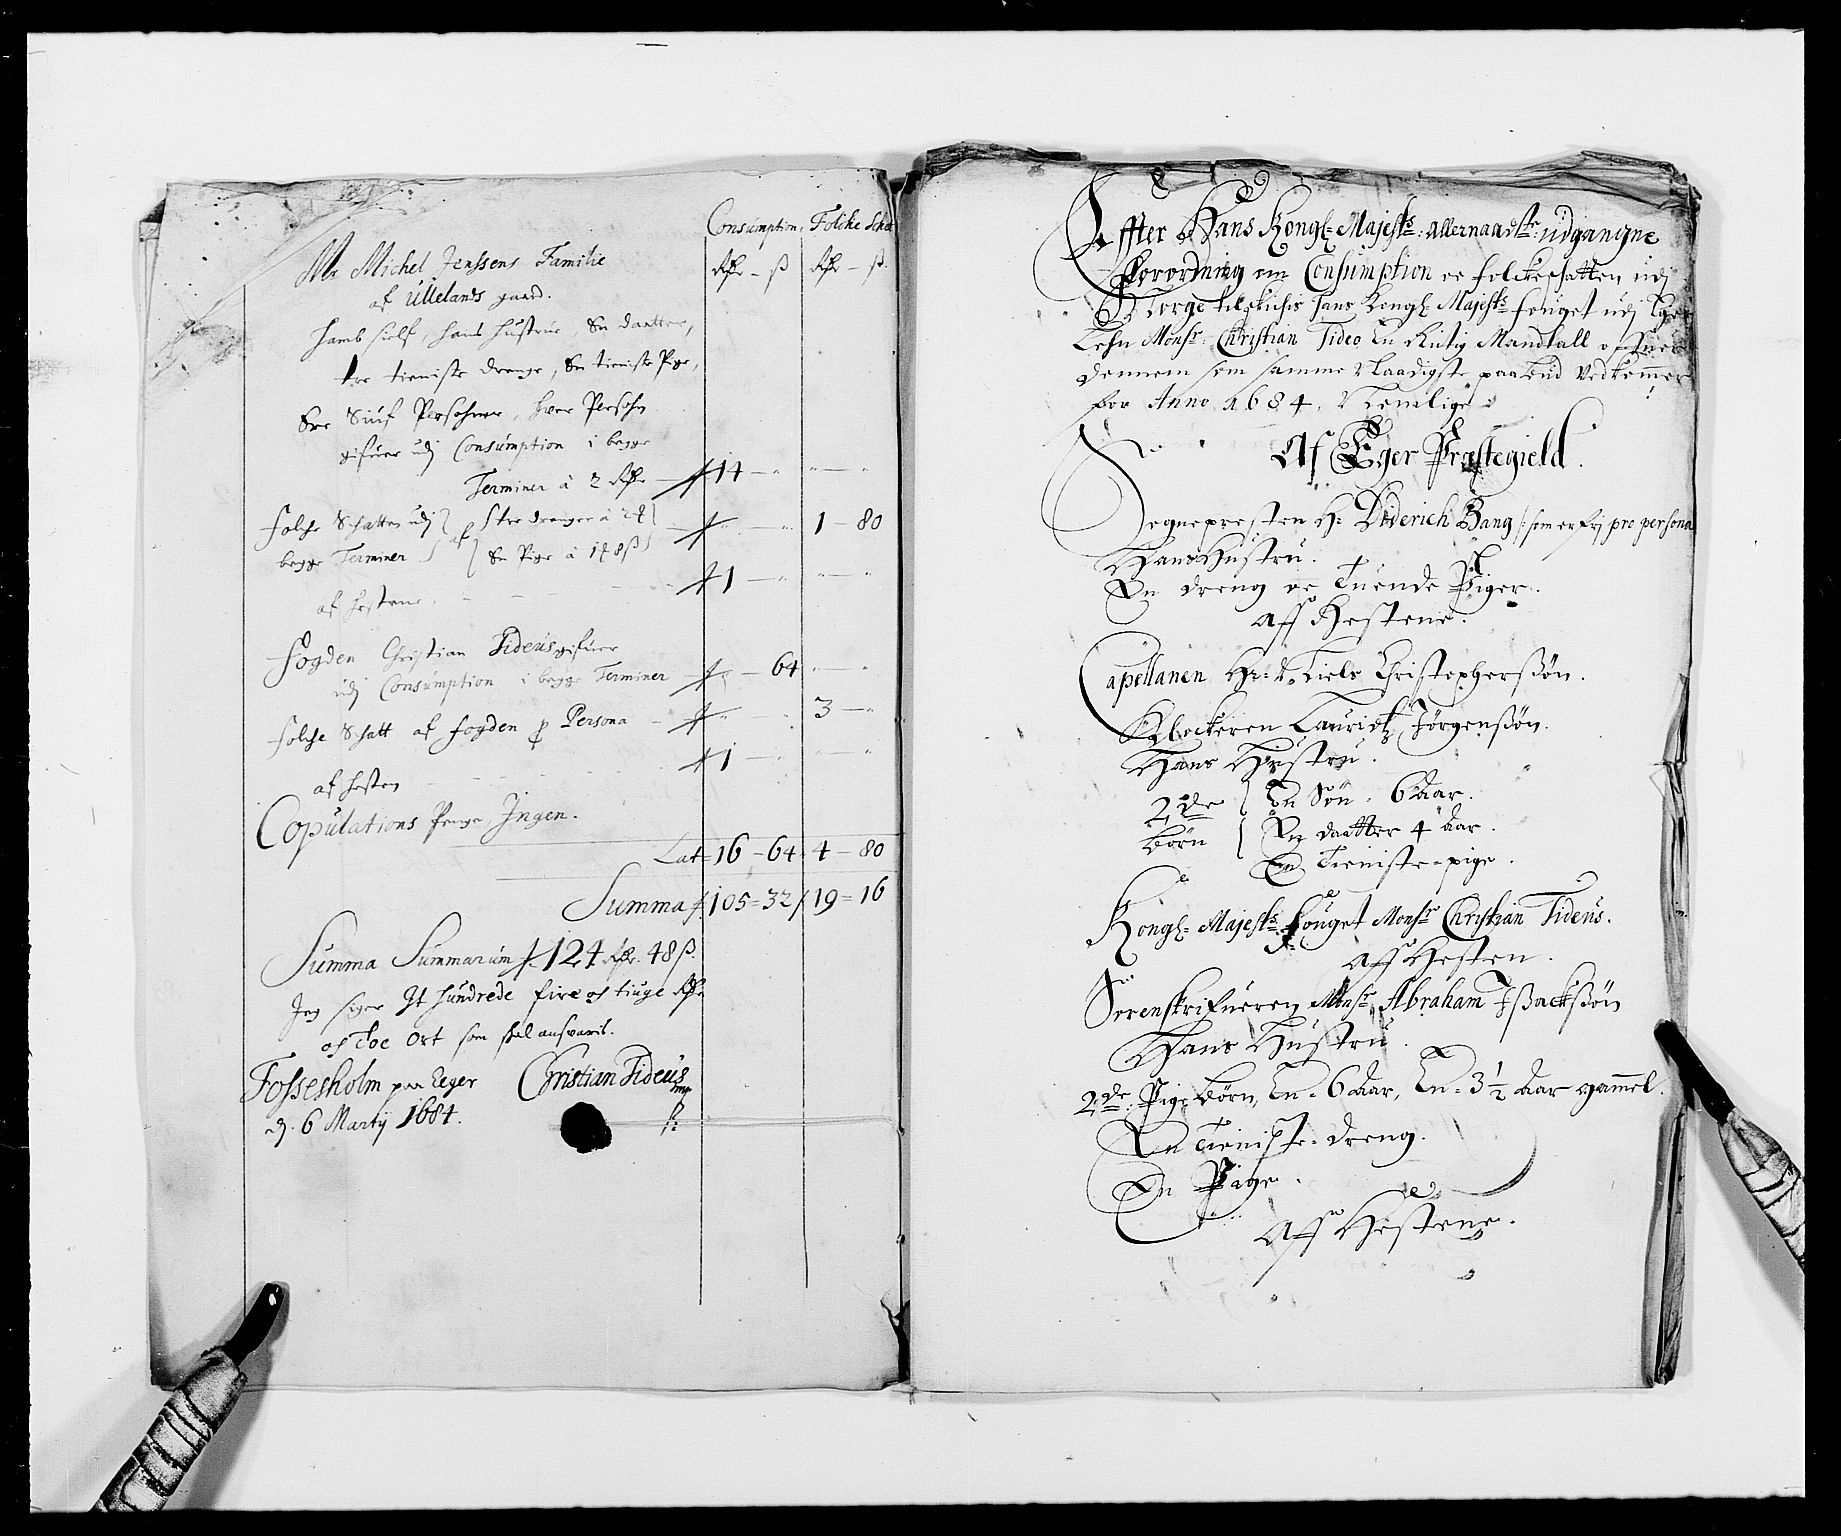 Consumption, Folche Schat
Rdr – ß Rdr – ß.
Mr Michel Jenssens Familie
af Ullelands gaard.
hamb sielf, hans hustrue, En daatter,
tre tieniste drenge, En tieniste Pige,
Ere Siuf Persohner, hver Persohn
gifuer udj Consumption i begge
Terminer à 2 Rdr 14 – „ „ – „
folche Schatten udj af 3tre drenger à 2 1 – 80
begge Terminer En Pige à 1 8 ß
af hestene 1 – „ „ – „
Fogden Christian Tideus gifuer
udj Consumption i begge Terminer „ – 64 „ – „
folche Schatt af fogden p Persona 3 – „
af hesten 1 – „ „ – „
Copulations Penge Ingen.
Lat= 16 – 64 4 – 80
Summa 105 = 32 / 19 = 16
Summa Summarum 124 Rdr. 48 ß.
Jeg siger It hundrede fire og tiuge Rdr
og toe Ort som skal ansvaris.
Fossesholm paa Eger Christian Tideus
mp
d. 6 Martij 1684.
Effter Hans Kongl: Majests: allernaadste: udgangne
Forordning om Consumption oc folckeschatten udj
Norge tilskichis hans Kongl Majests fouget udj Eger
Lehn Monsr: Christian Tideo En Rictig Mandtall ofuer
dennem som samme Naadigste paabud Vedkommer
for Anno 1684, Nemlige
Af Eger Præstegield.
Sognepresten Hr Diderich Bang /: som er frj pro persona
Hans Hustru.
En dreng oc Tuende Piger.
Aff Hestene.
Capellanen Hr: Niels Christophersøn.
Klockeren Lauridtz Jørgensøn.
Hans Hustru.
2de En Søn – 6 Aar.
Børn En daatter 4 Aar.
En Tieniste-pige.
Kongl: Majests: fouget Monsr Christian Tideus.
Aff Hesten.
Sorenskrifueren Monsr Abraham Isßacksøn
Hans Hustru.
2de: Pige børn, En – 6 Aar, En – 3 1/2 Aar gammel.
En Tieniste-dreng.
En Pige.
Aff Hestene.